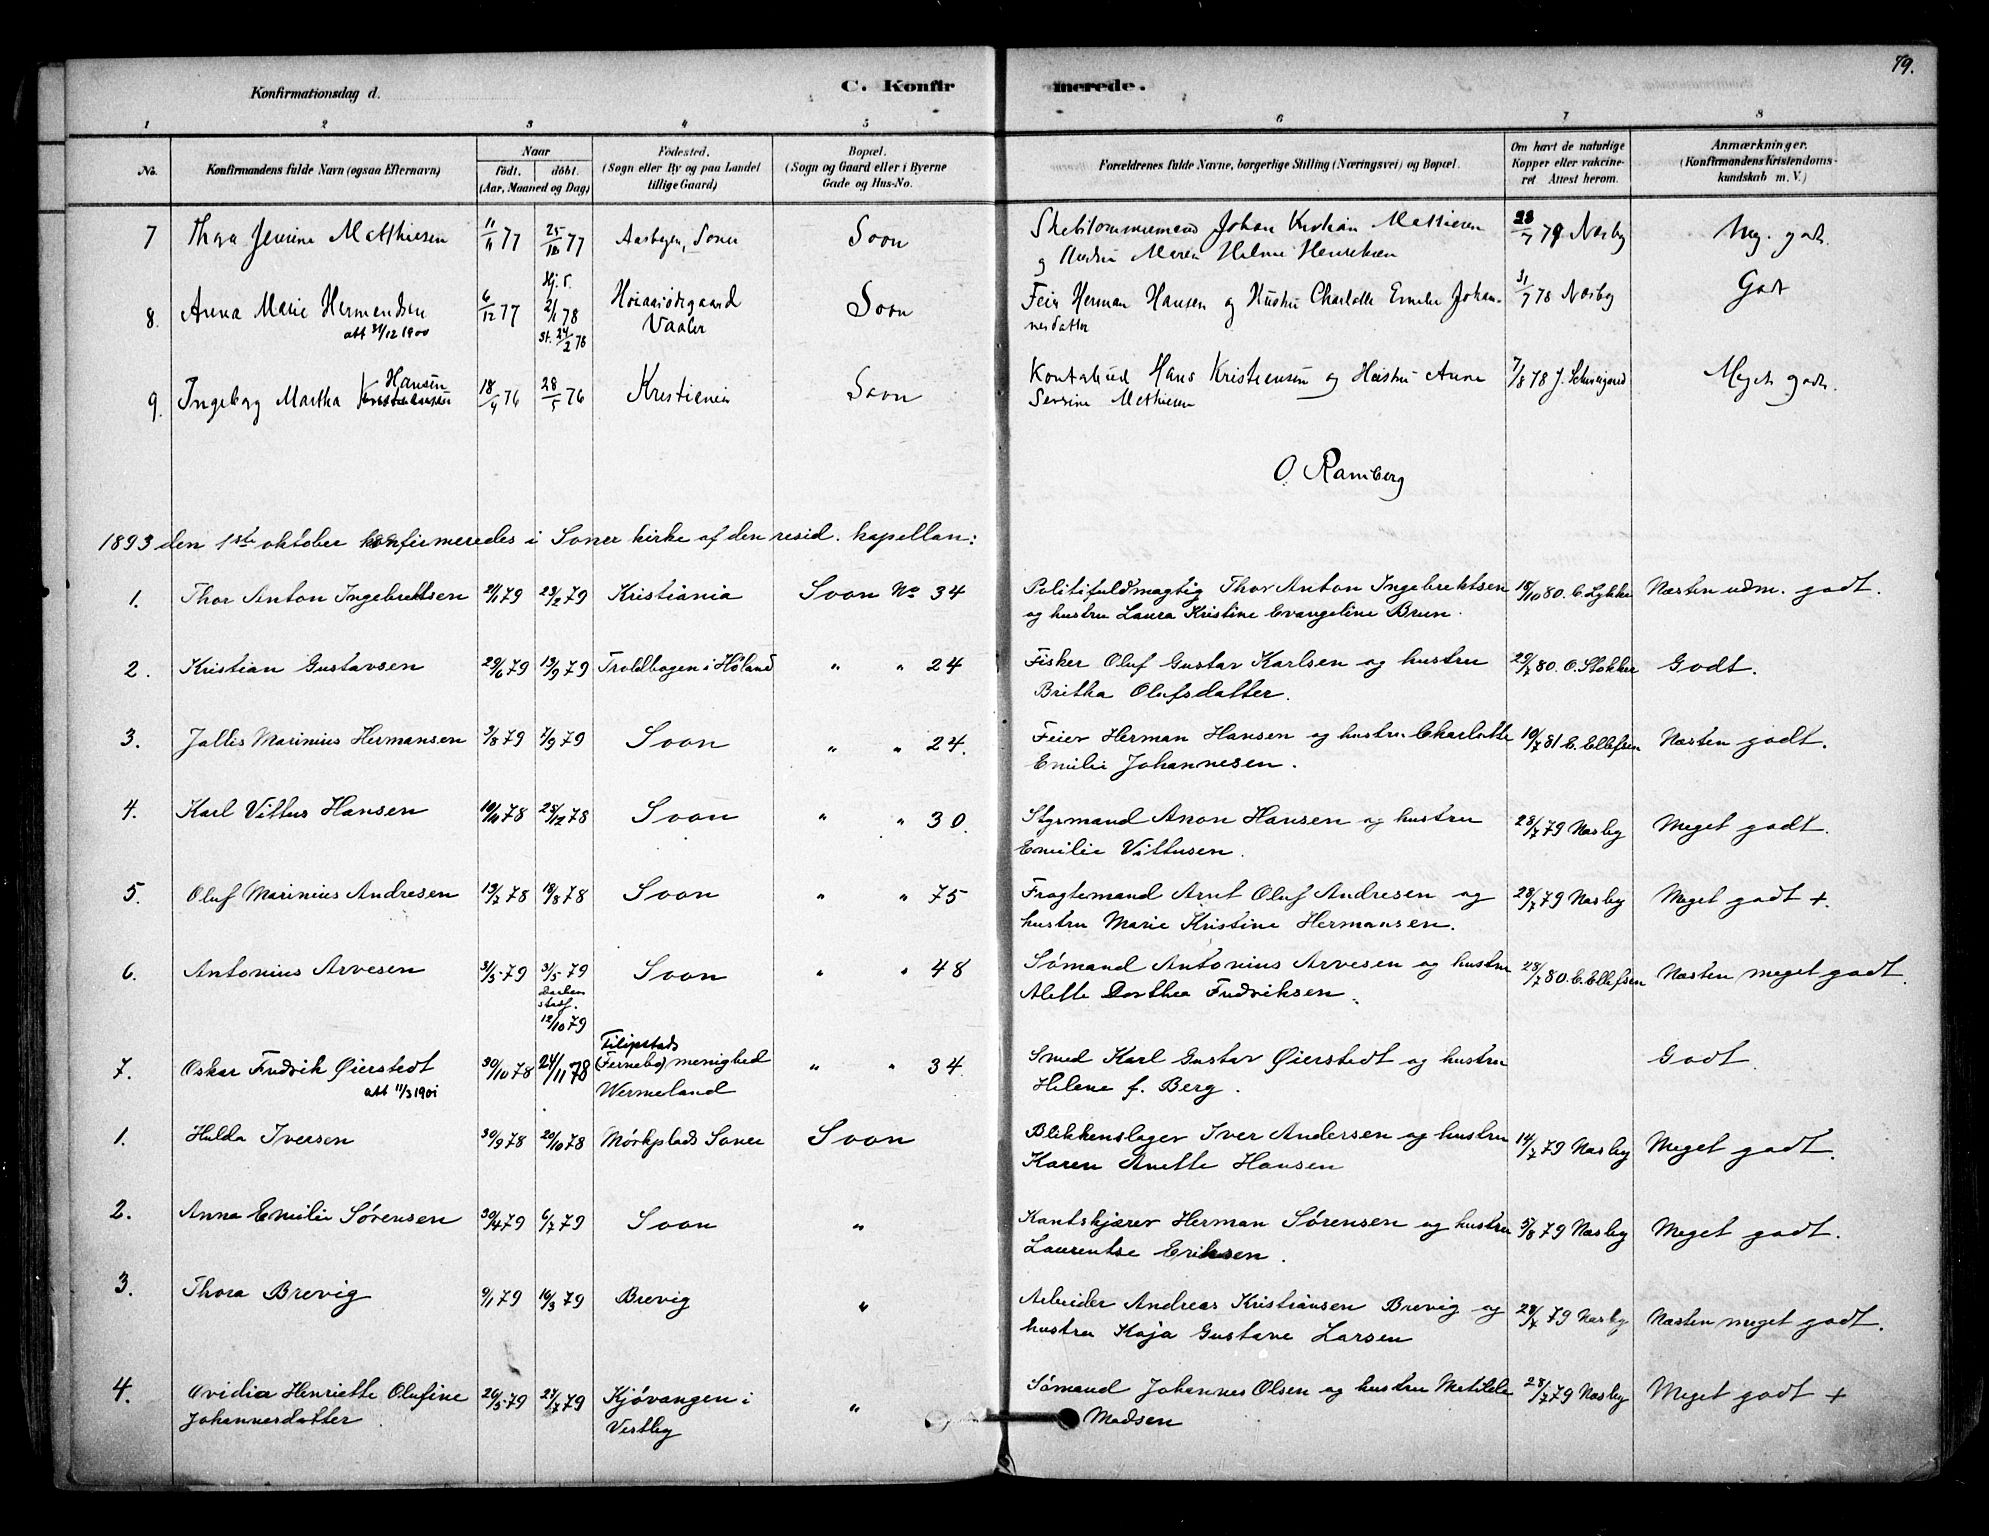 79.
Konfirmationsdag d.
C. Konfirmerede.
1 2 3 4 5 6 7 8
No. Konfirmandens fulde Navn (ogsaa Efternavn) Naar født. døbt. (Aar, Maaned og Dag) Fødested. (Sogn eller By og paa Landet tillige Gaard) Bopæl. (Sogn og Gaard eller i Byerne Gade og Hus-No. Forældrenes fulde Navne, borgerlige Stilling (Næringsvei) og Bopæl. Om havt de naturlige Kopper eller vakcineret Attest herom. Anmærkninger. (Konfirmandens Kristendomskundskab m. V.)
7 Thora Jensine Matthiesen 11/11 77 25/12 77 Soner Soon Johan Kristian Mathiesen 23/7 79 Næsby Meg. godt.
og Hustru Maren Helene Henriksen
8. Anna Marie Hermendsen 6/12 77 Hj. d. 2/1 78 Vaaler Soon Feier Herman Hansen og Hustru Charlotte Emelie Johan- 31/7 78 Næsby Godt
att 31/12 1900 st. 24/2 78 nesdatter
9. Ingeborg Martha Hansen 18/4 76 28/5 76 Kristiania Soon Hans Kristiansen og Hustru Anne 7/8 78 Meget godt.
Mathiesen
O. Ramberg
1893 den 1ste oktober konfirmeredes i Soner kirke af den resid. kapellan:
1. Thor Anton Ingebrektsen 21/1 79 23/2 79 Kristiania Soon No 34 Politifuldmægtig Thor Anton Ingebrektsen 18/10 80. C. Lykke Næsten udm. godt.
og hustru Laura Kristine Evangeline Brun.
2. Kristian Gustavsen 29/6 79 19/9 79 Troldbogen i Høland " " 24 Fisker Oluf Gustav Karlsen og hustru 29/7 80. O. Stokker Godt.
Britha Olufsdatter.
3. Jallis Marinius Hermansen 3/8 79 7/9 79 Soon " " 24. Feier Herman Hansen og hustru Charlotte 10/7 81 C. Ellefsen Næsten godt.
Emilie Johannesen.
4. Karl Vittus Hansen 10/11 78 25/12 78 Soon " " 30. Styrmand Anon Hansen og hustru 28/7 79 Næsby Meget godt.
Emilie Vittusen.
5. Oluf Marinius Andresen 19/7 78 18/8 78 Soon " " 75 Fragtemand Arnt Oluf Andresen og 28/7 79 Næsby Meget godt +.
hustru Marie Kristine Hermansen.
6. Antonius Arvesen 31/3 79 3/5 79 Soon " " 48 Sømand Antonius Arvesen og hustru 28/7 80. C. Ellefsen Næsten meget godt.
stadf. 12/10 79 Alette Dorthea Fredriksen.
7. Oskar Fredrik Øierstedt 30/10 78 24/11 78 Filipstads (Fernebo) menighed " " 34 Smed Karl Gustav Øierstedt og hustru Godt.
att 11/3 1901 Wermeland Helene f. Berg.
1. Hulda Iversen 30/9 78 20/10 78 Mørkplads Soner Soon Blikkenslager Iver Andersen og hustru 14/7 79 Næsby Meget godt.
Karen Anette Hansen
2. Anna Emilie Sørensen 30/4 79 6/7 79 Soon " Herman Sørensen og hustru 5/8 79 Næsby Meget godt.
Laurentse Eriksen.
3. Thora Brevig 9/1 79 16/3 79 Brevig " Arbeider Andreas Kristiansen Brevig og 28/7 79 Næsby Næsten meget godt.
hustru Kaja Gustave Larsen
4. Ovidia Henriette Olufine 26/5 79 27/7 79 Kjøvangen i " Sømand Johannes Olsen og hustru Matilde 28/7 79 Næsby Meget godt +
Johannesdatter Vestby Madsen